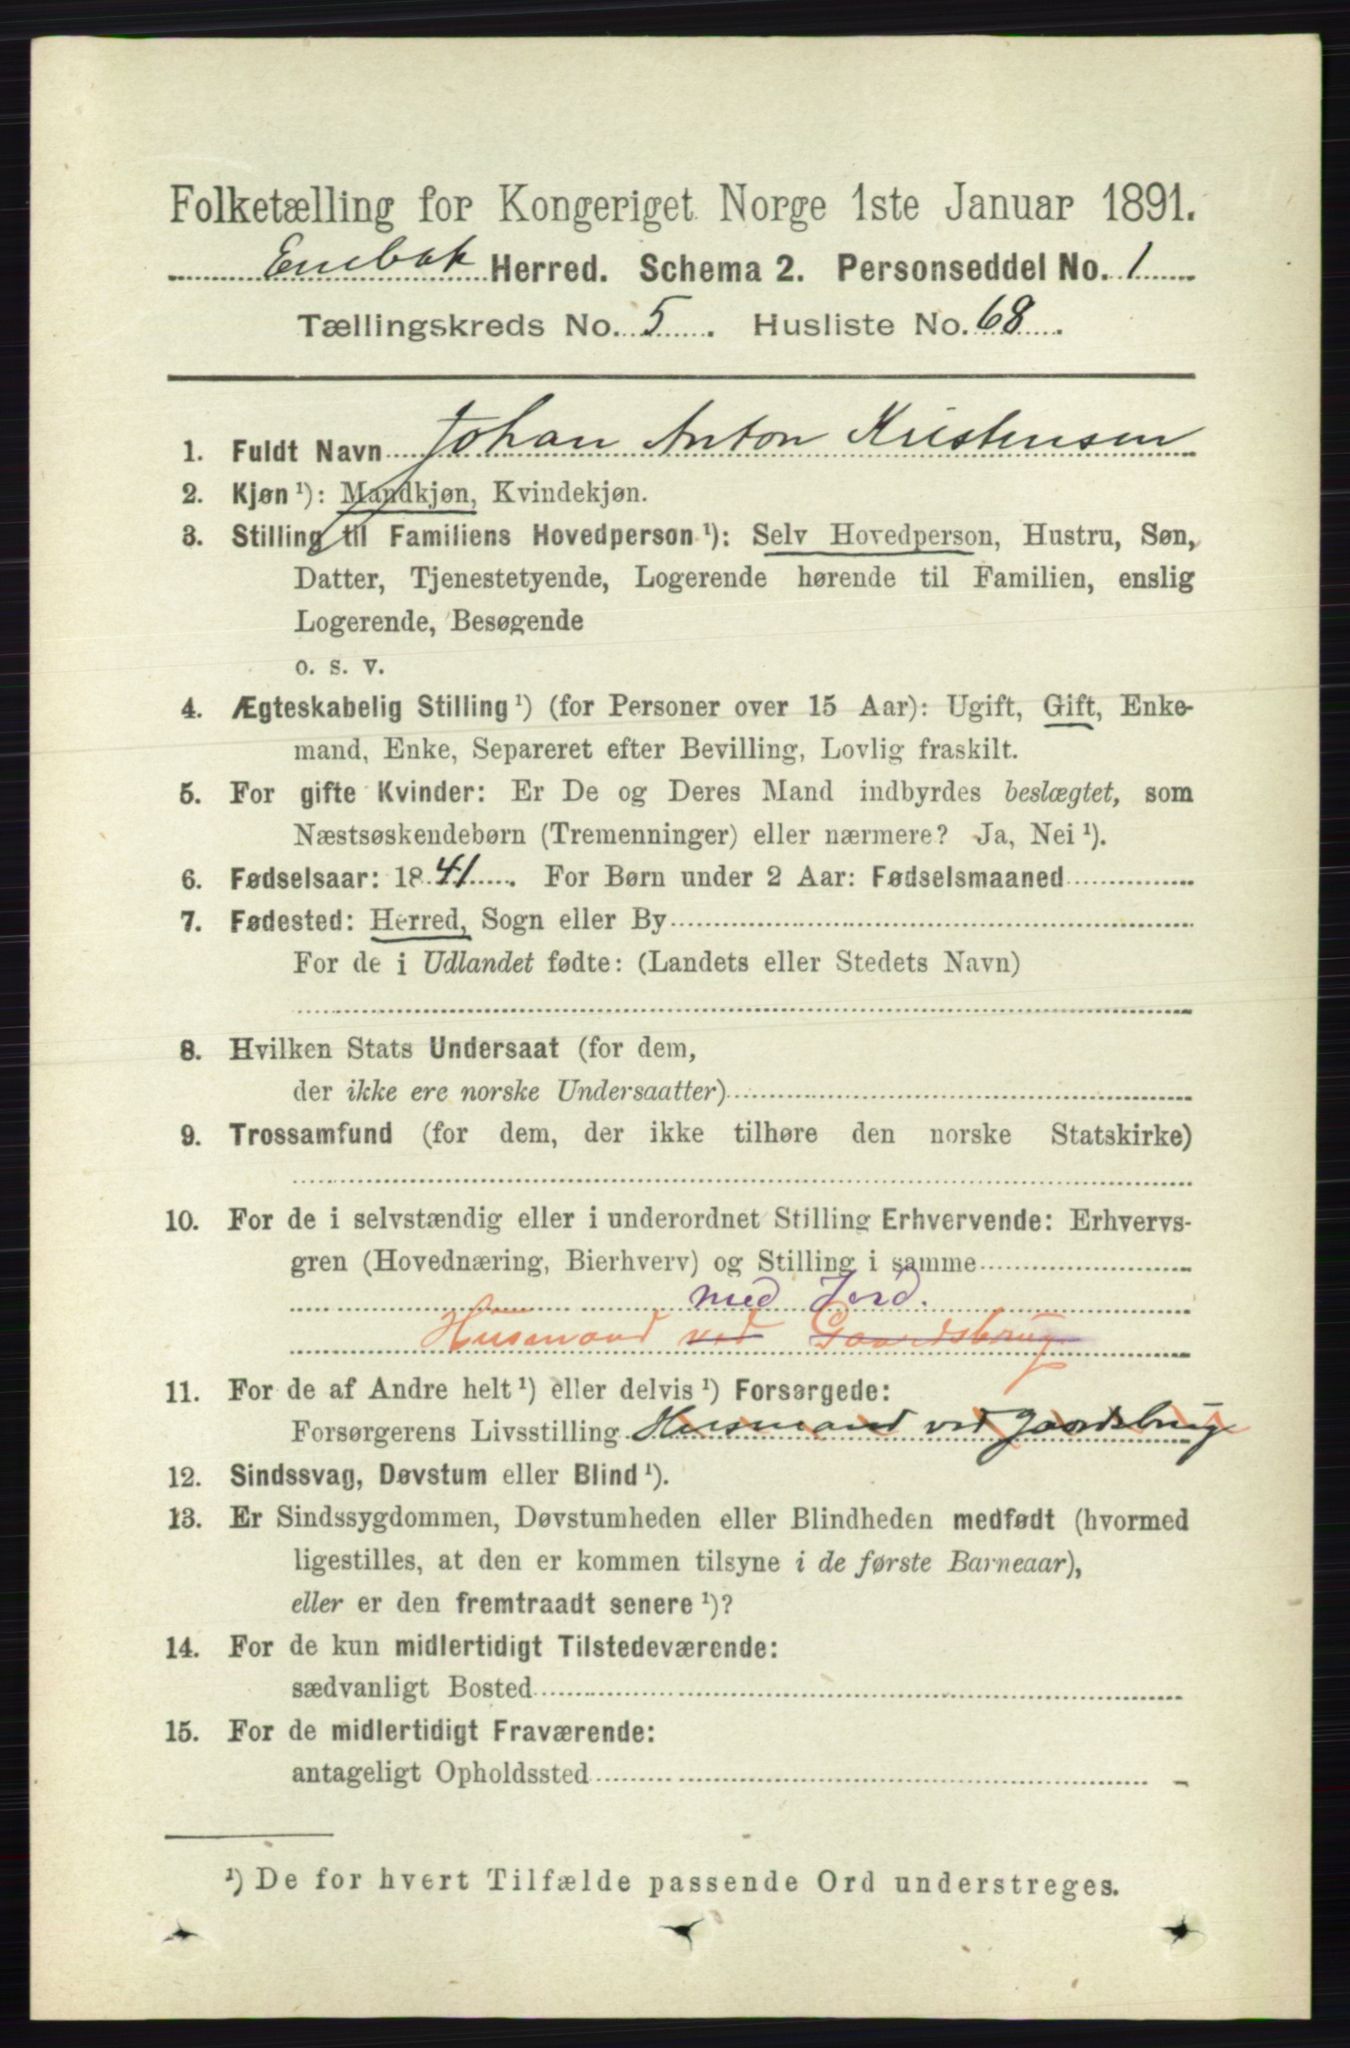 Folketælling for Kongeriget Norge 1ste Januar 1891.
Enebak Herred. Schema 2. Personseddel No. 1
Tællingskreds No. 5. Husliste No. 68.
1. Fuldt Navn Johan Anton Kristensen
2. Kjøn ¹): Mandkjøn, Kvindekjøn.
3. Stilling til Familiens Hovedperson ¹): Selv Hovedperson, Hustru, Søn,
Datter, Tjenestetyende, Logerende hørende til Familien, enslig
Logerende, Besøgende
o. s. v.
4. Ægteskabelig Stilling ¹) (for Personer over 15 Aar): Ugift, Gift, Enke-
mand, Enke, Separeret efter Bevilling, Lovlig fraskilt.
5. For gifte Kvinder: Er De og Deres Mand indbyrdes beslægtet, som
Næstsøskendebørn (Tremenninger) eller nærmere? Ja, Nei ¹).
6. Fødselsaar: 1841. For Børn under 2 Aar: Fødselsmaaned
7. Fødested: Herred, Sogn eller By
For de i Udlandet fødte: (Landets eller Stedets Navn)
8. Hvilken Stats Undersaat (for dem,
der ikke ere norske Undersaatter)
9. Trossamfund (for dem, der ikke tilhøre den norske Statskirke)
10. For de i selvstændig eller i underordnet Stilling Erhvervende: Erhvervs-
gren (Hovednæring, Bierhverv) og Stilling i samme
med Jord.
Husmand ved Gaardsbrug
11. For de af Andre helt ¹) eller delvis ¹) Forsørgede:
Forsørgerens Livsstilling Husmand ved Gaardsbrug
12. Sindssvag, Døvstum eller Blind ¹).
13. Er Sindssygdommen, Døvstumheden eller Blindheden medfødt (hvormed
ligestilles, at den er kommen tilsyne i de første Barneaar),
eller er den fremtraadt senere ¹)?
14. For de kun midlertidigt Tilstedeværende:
sædvanligt Bosted
15. For de midlertidigt Fraværende:
antageligt Opholdssted
¹) De for hvert Tilfælde passende Ord understreges.